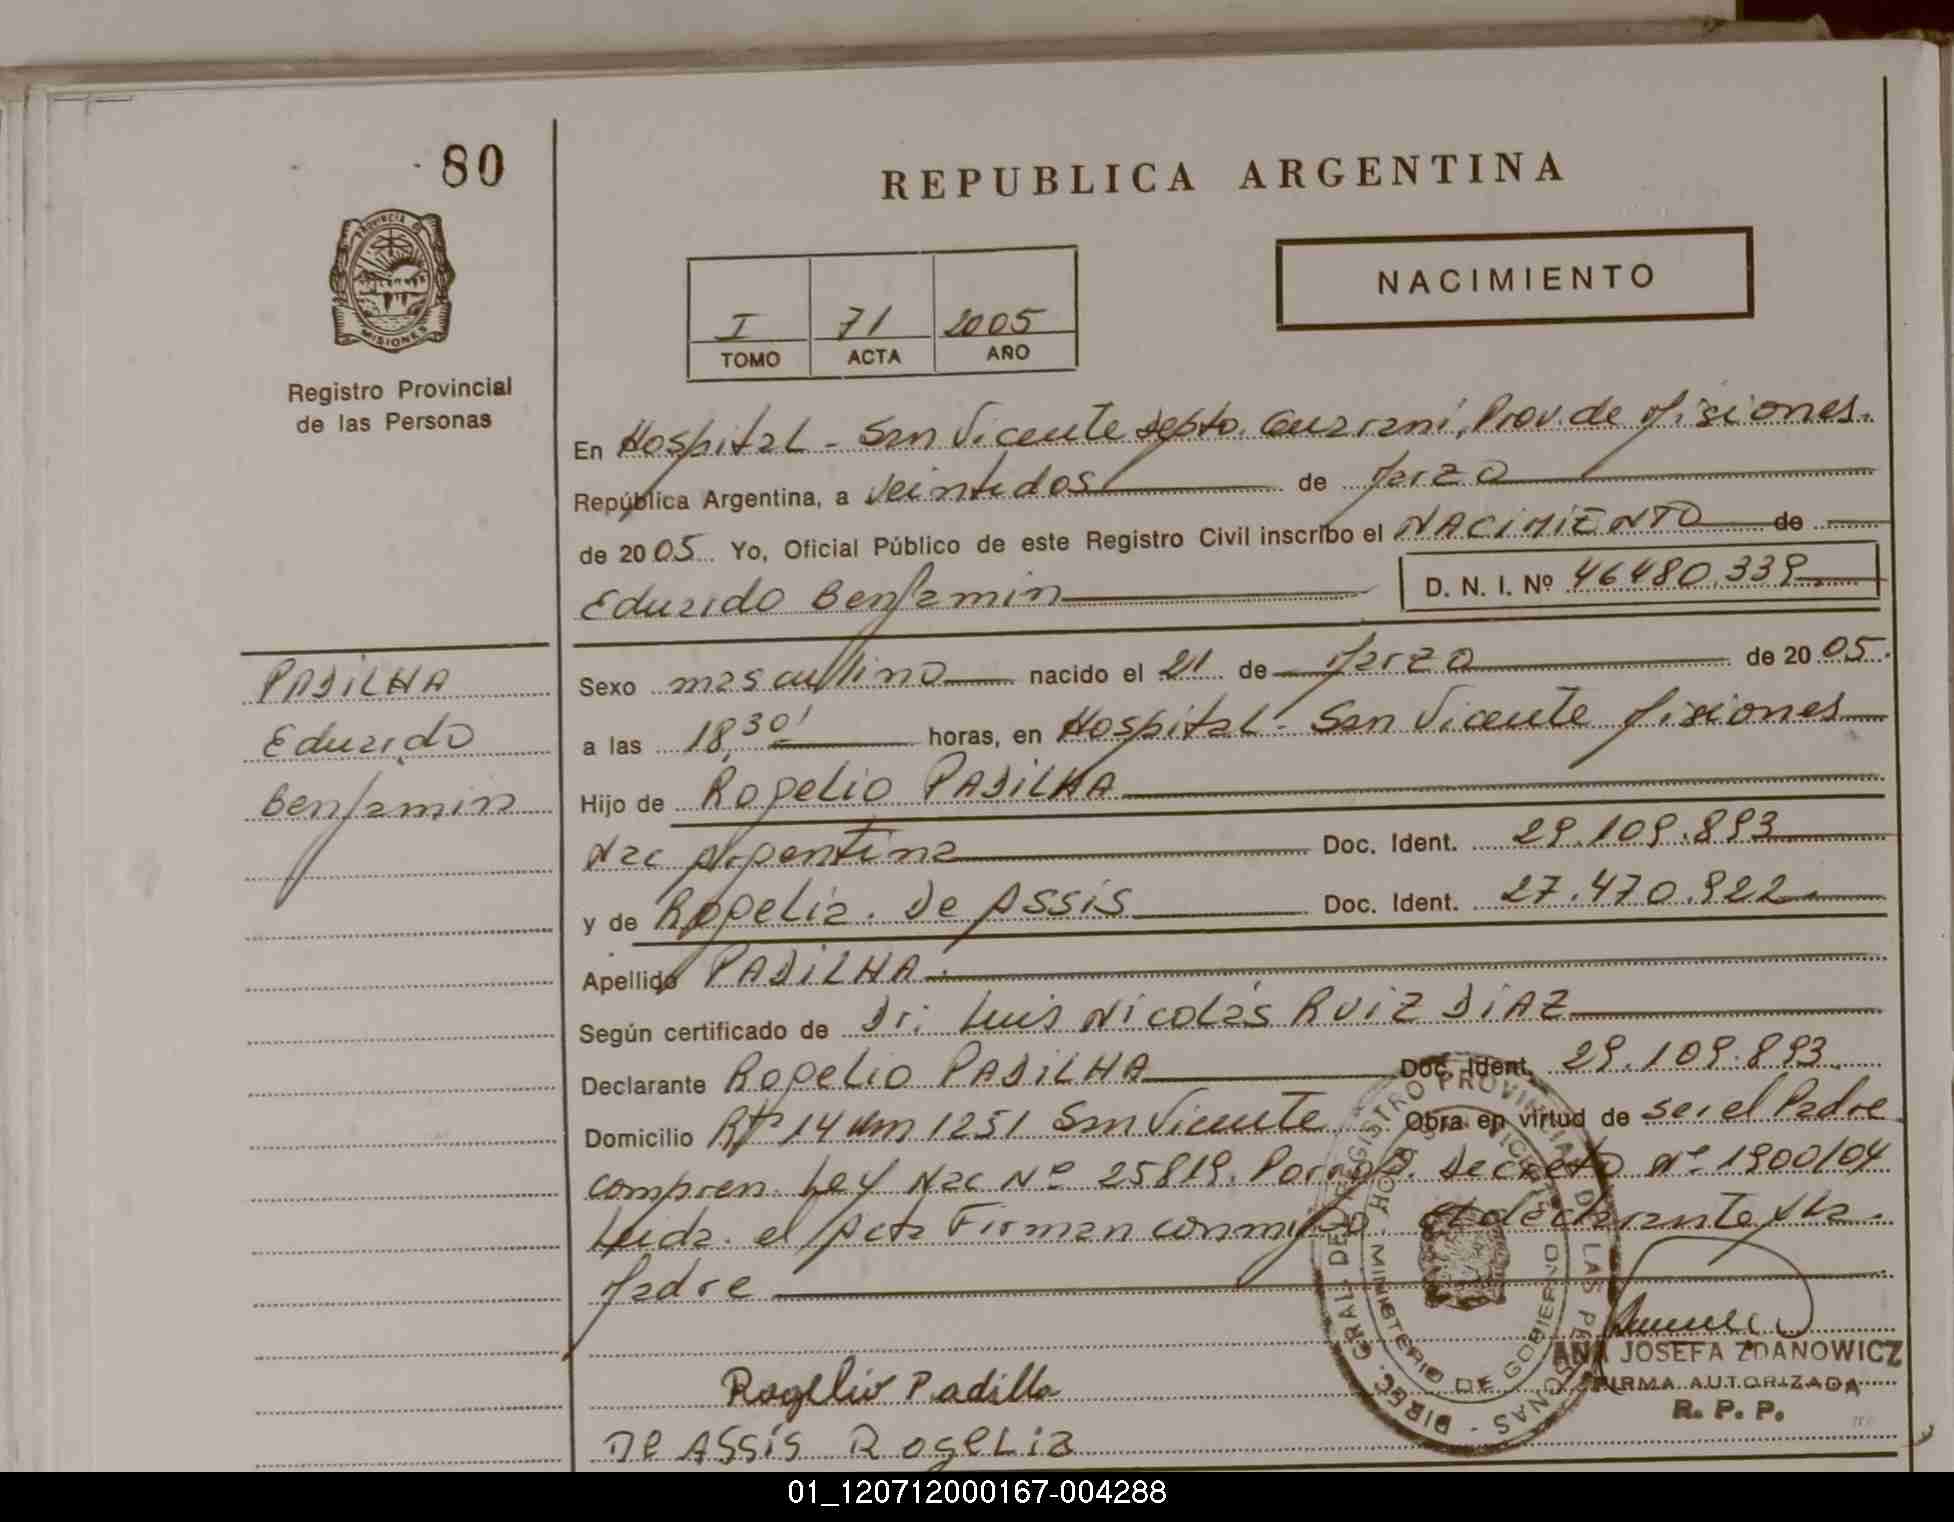 80
PROVINCIA DE
MISIONES
Registro Provincial
de las Personas
REPUBLICA ARGENTINA
NACIMIENTO
I 71 2005
TOMO ACTA AÑO
En Hospital - San Vicente Depto. Guaraní, Prov. de Misiones.
República Argentina, a Veintidos de Marzo
de 2005 Yo, Oficial Público de este Registro Civil inscribo el NACIMIENTO de
Eduardo Benjamin D. N. I. Nº 46480.339
PADILHA
Eduardo
Benjamin
Sexo masculino nacido el 21 de Marzo de 2005.
a las 18,30' horas, en Hospital - San Vicente Misiones
Hijo de Rogelio PADILHA
Nac Argentina Doc. Ident. 29.109.893
y de Rogelia. De Assis Doc. Ident. 27.470.922.
Apellido PADILHA.
Según certificado de Dr: Luis Nicolás RUIZ DIAZ
Declarante Rogelio PADILHA Doc. Ident. 29.109.893.
Domicilio Rta 14 Km 1251 San Vicente Obra en virtud de ser el Padre
Ley Nac Nº 25819. Decreto Nº 1900/04
Leida. el Acta Firman conmigo. el declarante y la.
Madre
Rogelio Padilla
De Assis Rogelia
DIREC. GRAL. DE REGISTRO PROVINCIAL DE LAS PERSONAS -
MINISTERIO DE GOBIERNO
ANA JOSEFA ZDANOWICZ
FIRMA AUTORIZADA
R. P. P.
01_120712000167-004288